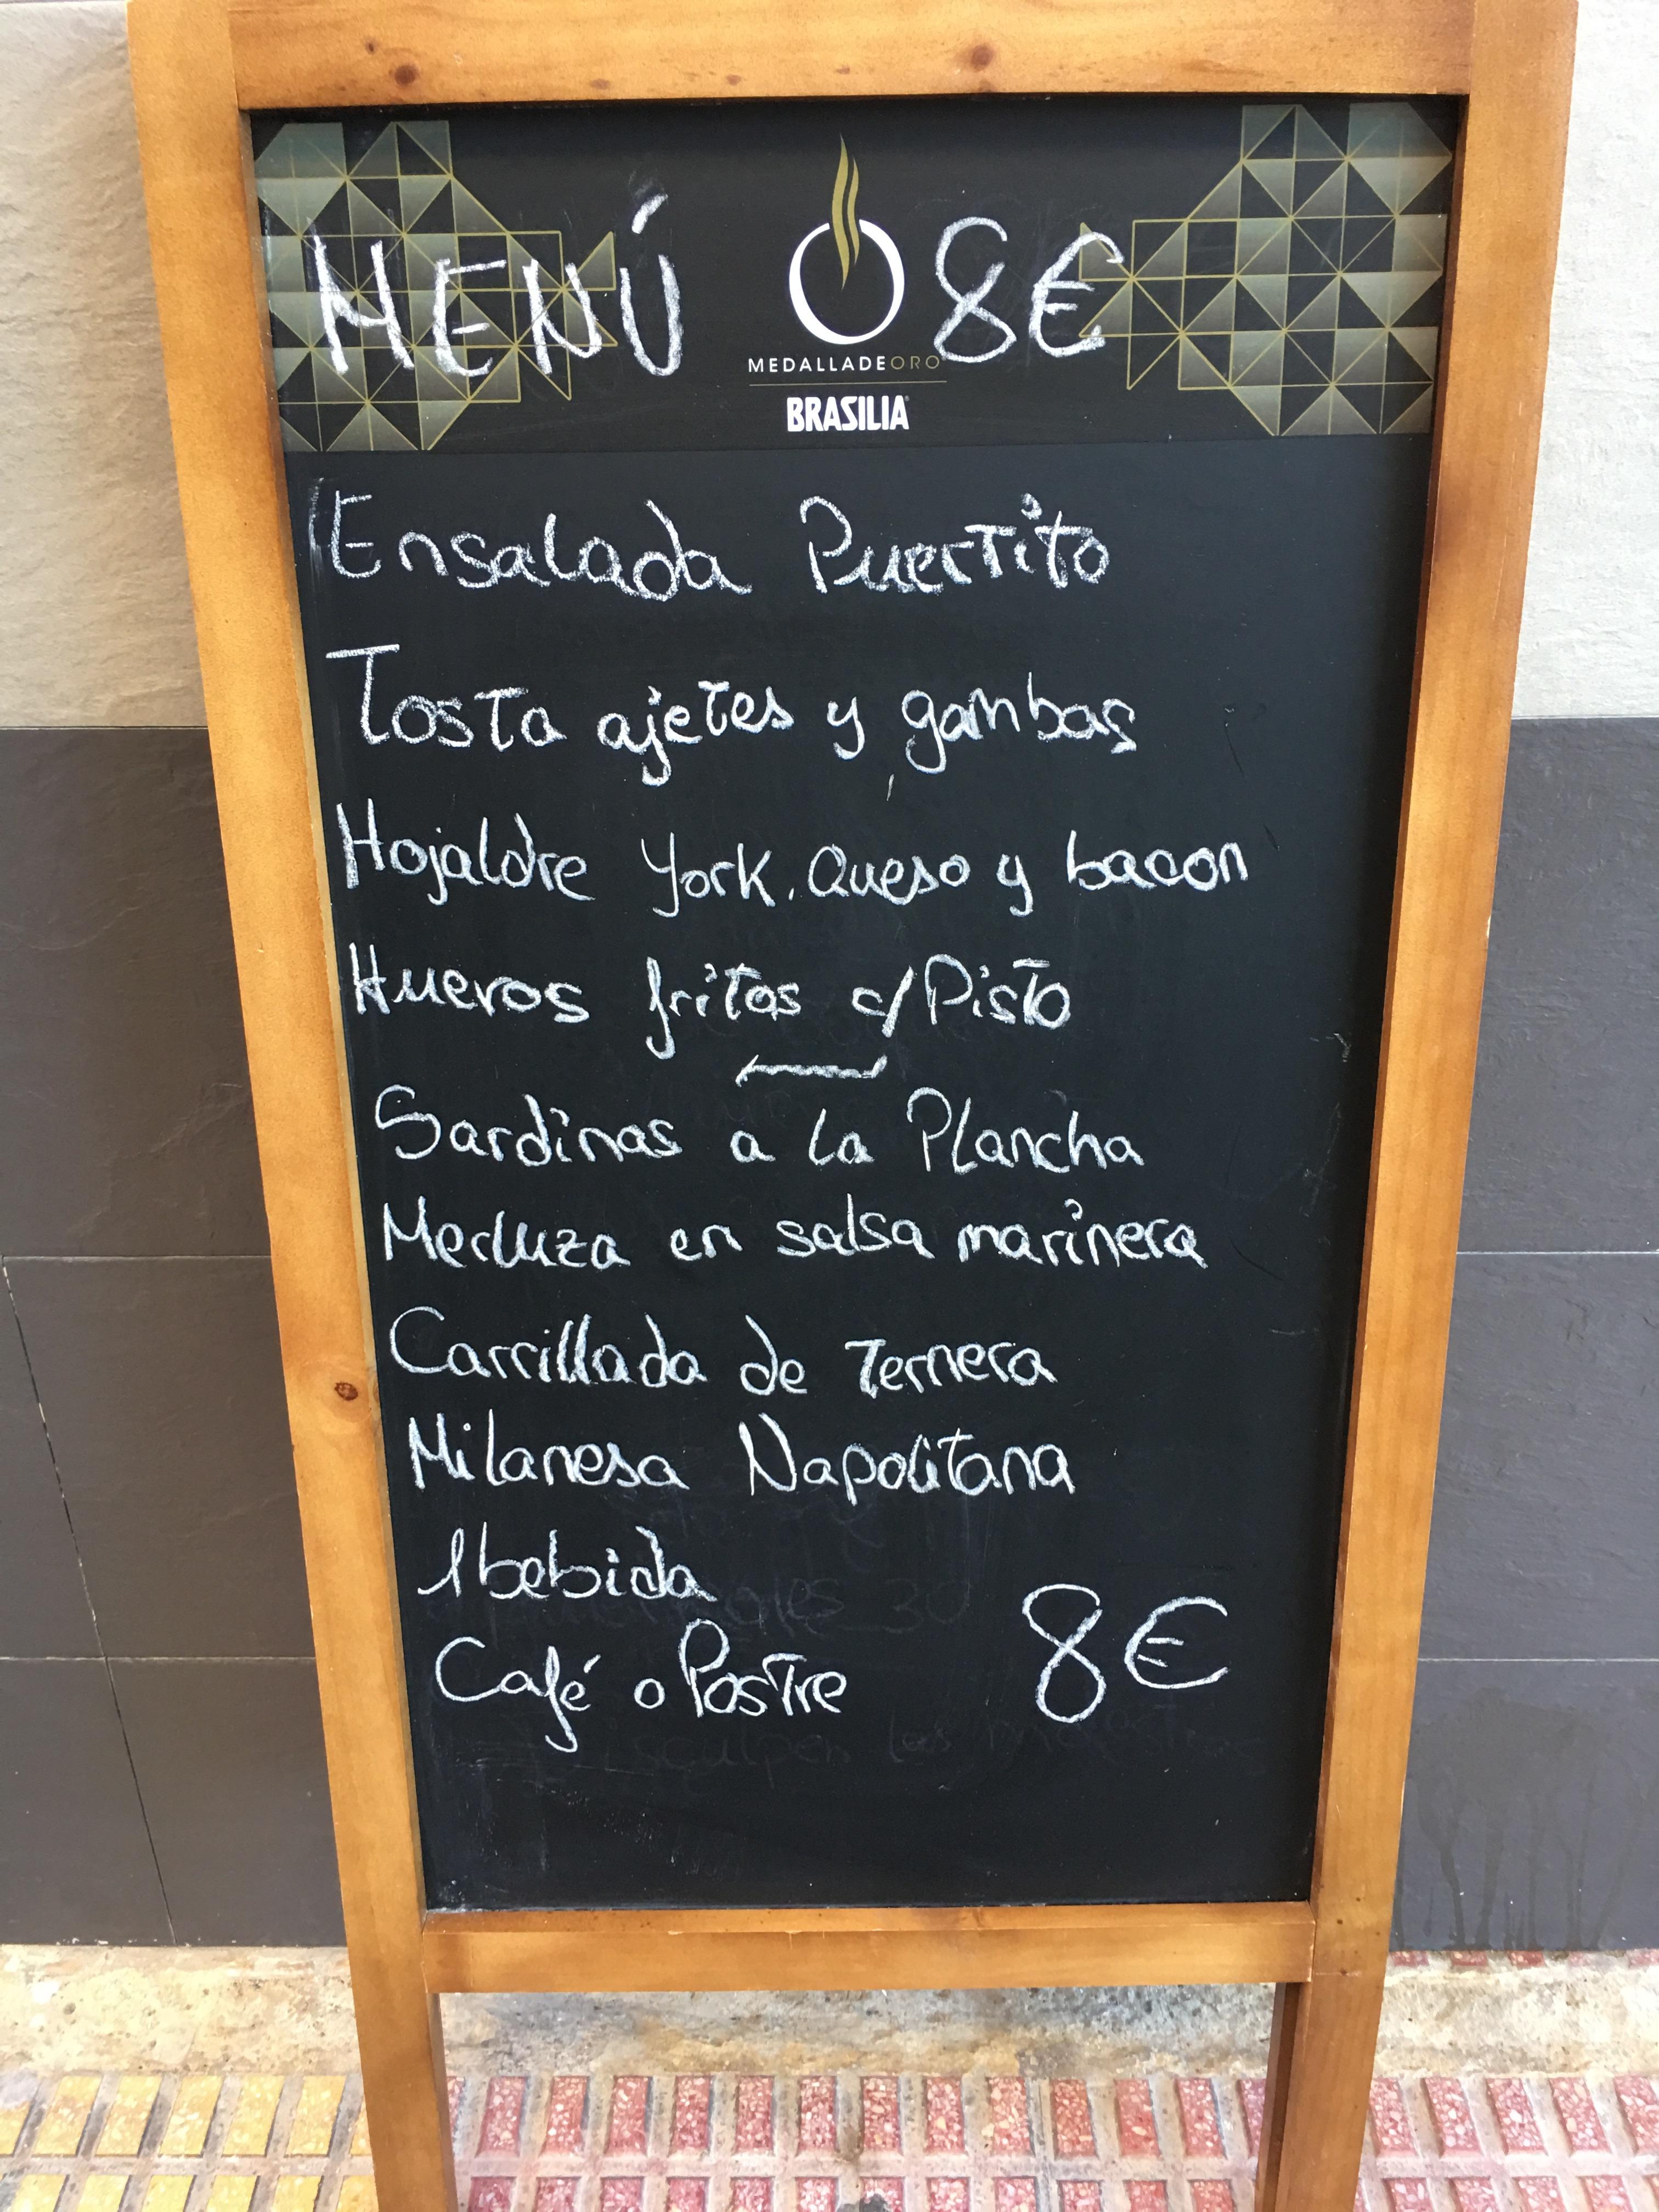 MENÚ 8€
MEDALLADEORO
BRASILIA
Ensalada Puertito
Tosta ajetes y gambas
Hojaldre York, Queso y bacon
Huevos fritos c/Pisto
Sardinas a la Plancha
Merluza en salsa marinera
Carrillada de Ternera
Milanesa Napolitana
1 bebida
Café o Postre 8€